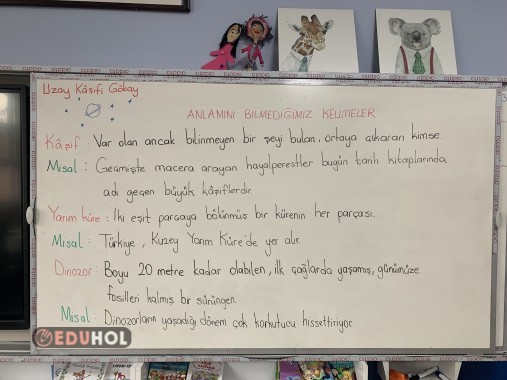 Uzay Kâşifi Gökay
ANLAMINI BİLMEDİĞİMİZ KELİMELER
Kâşif : Var olan ancak bilinmeyen bir şeyi bulan, ortaya çıkaran kimse.
Misal : Geçmişte macera arayan hayalperestler bugün tarih kitaplarında
adı geçen büyük kâşiflerdir
Yarım küre : İki eşit parçaya bölünmüş bir kürenin her parçası.
Misal : Türkiye, Kuzey Yarım Küre'de yer alır.
Dinozor : Boyu 20 metre kadar olabilen, ilk çağlarda yaşamış, günümüze
fosilleri kalmış bir sürüngen
Misal : Dinozorların yaşadığı dönem çok korkutucu hissettiriyor
EDUHOL